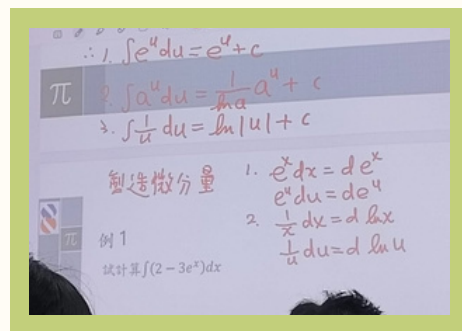 ∴ 1. ∫eᵘdu = eᵘ + c
π
2. ∫aᵘdu = 1/ln a aᵘ + c
3. ∫1/u du = ln|u| + c
塑造微分量
1. eˣdx = deˣ
eᵘdu = deᵘ
2. 1/x dx = d lnx
1/u du = d ln u
π
例 1
試計算∫(2 − 3eˣ)dx